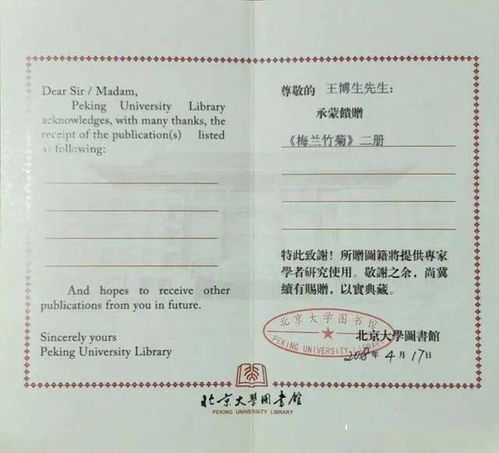 Dear Sir / Madam,
Peking University Library
acknowledges, with many thanks, the
receipt of the publication(s) listed
as following:
And hopes to receive other
publications from you in future.
Sincerely yours
Peking University Library
尊敬的 王博生先生：
承蒙饋贈
《梅兰竹菊》二册
特此致謝！所贈圖籍將提供專家
學者研究使用。敬謝之余，尚冀
續有賜贈，以實典藏。
北京大学图书馆
PEKING UNIVERSITY LIBRARY
北京大學圖書館
2008年4月17日
北京大學圖書館
PEKING UNIVERSITY LIBRARY